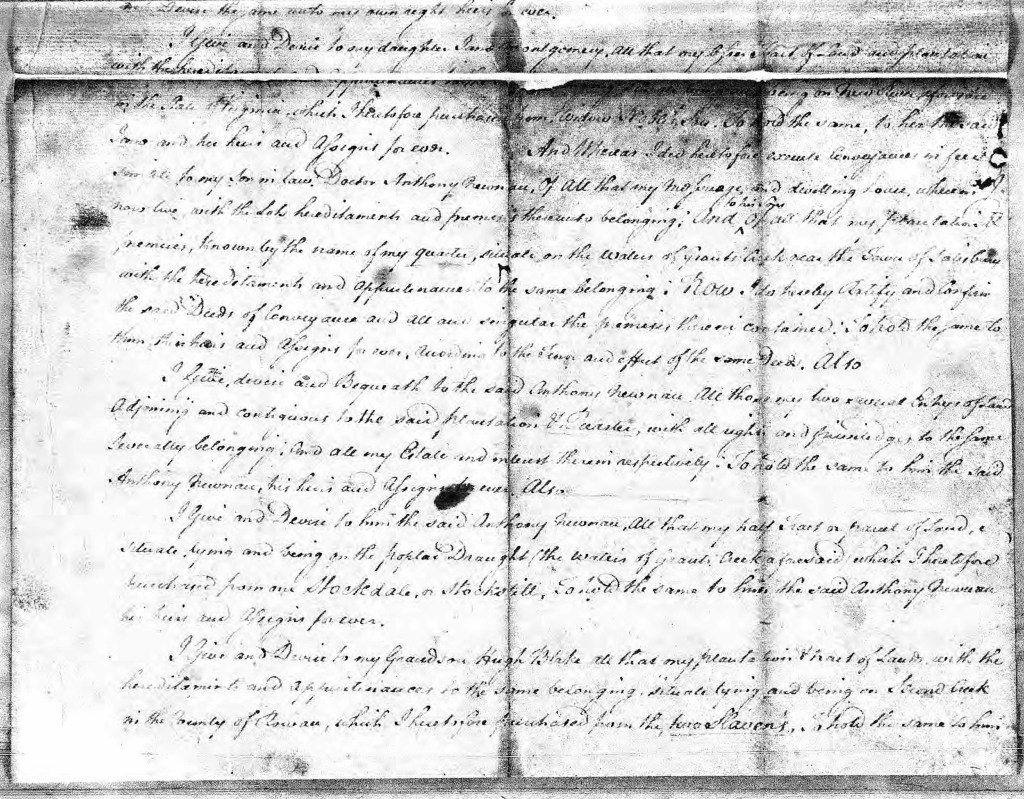 Devise the same unto my own right heirs for ever.
I Give and Devise to my daughter Jane Montgomery, all that my Tract of Land and plantation
with the
being on New River
in the State Virginia, which I heretofore purchased from Widow To hold the same, to her the said
Jane and her heirs and Assigns for ever. And Whereas I did heretofore execute Conveyances in fee
simple to my Son in law, Doctor Anthony Newnan, Of All that my Messuage, and dwelling house, wherein I
now live, with the Lots hereditaments and premises thereunto belonging; And of all that my plantation &
premises, known by the name of my quarter, situate on the Waters of Grants Creek near the Town of Salisbury
with the hereditaments and Appurtenances to the same belonging; Now I do hereby Ratify and Confirm
the said Deeds of Conveyance and all and singular the premises therein contained: To hold the same to
him, his heirs and Assigns for ever, according to the Tenor and effect of the same Deeds. Also
I Give, devise and Bequeath to the said Anthony Newnan, All those my two several Entrys of Land
Adjoining and contiguous to the said plantation with all rights and priviledges to the same
Severally belonging; And all my Estate and interest therein respectively: To hold the same to him the said
Anthony Newnan, his heirs and Assigns for ever. Also
I Give and Devise to him the said Anthony Newnan, All that my half Tract or parcel of Land,
situate, lying and being on the poplar Draught (the Waters of Grants Creek aforesaid) which I heretofore
purchased from one Stockdale, or Stockstill, To hold the same to him the said Anthony Newnan
his heirs and Assigns for ever.
I Give and Devise to my Grandson Hugh Blake all that my plantation & tract of Land, with the
hereditaments and appurtenances to the same belonging, situate lying and being on Second Creek
in the County of Rowan, which I heretofore purchased from the two Slavens, To hold the same to him